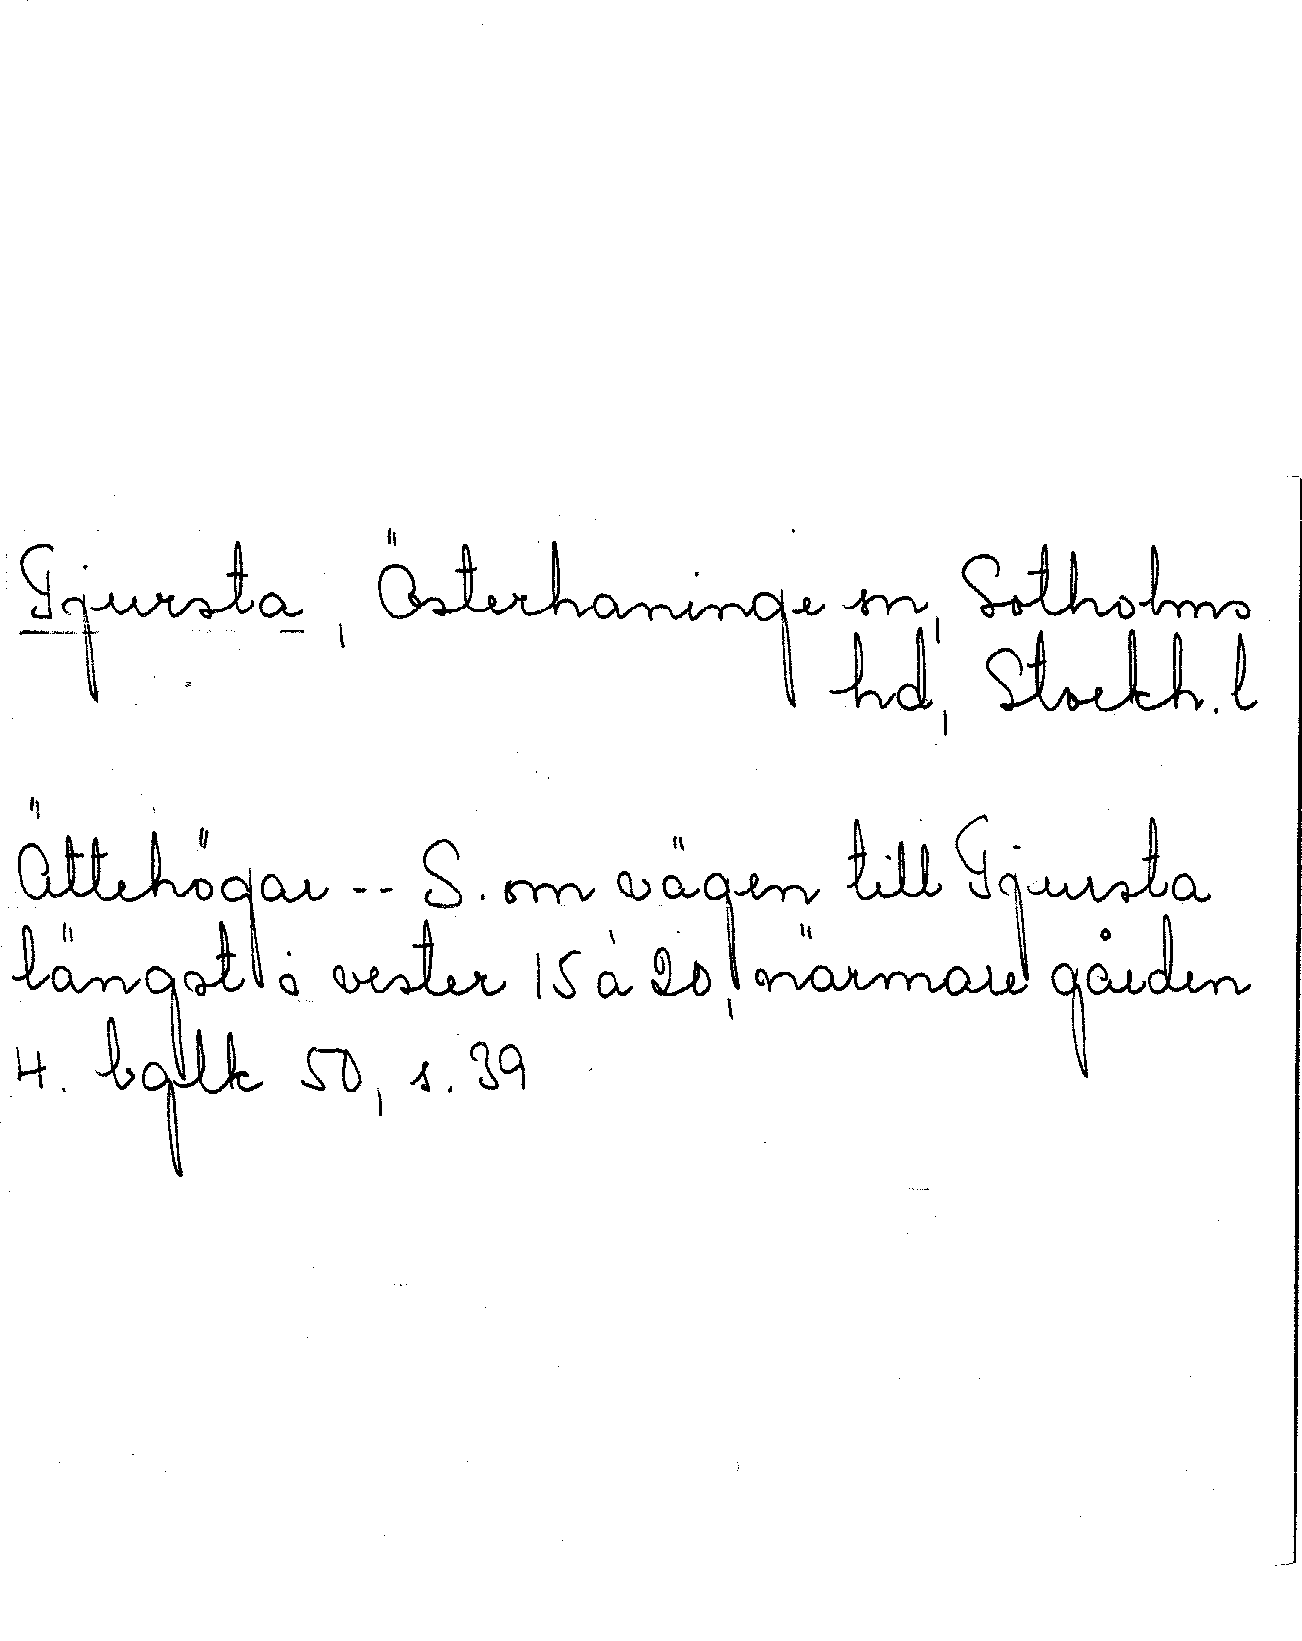 Gjursta, Österhaninge sn, Sotholms
hd, Stockh. l
Ättehögar -- S. om vägen till Gjursta
längst i vester 15 à 20, närmare gården
4. bglk 50, s. 39